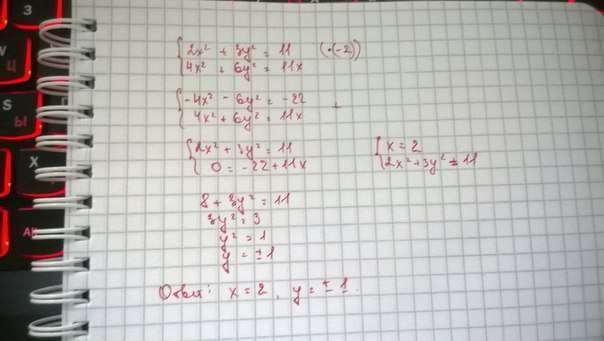 { 2x² + 3y² = 11 (·(-2))
4x² + 6y² = 11x
{ -4x² - 6y² = -22 +
4x² + 6y² = 11x
{ 2x² + 3y² = 11
0 = -22 + 11x
{ x = 2
2x² + 3y² = 11
8 + 3y² = 11
3y² = 3
y² = 1
y = ±1
Ответ: x = 2, y = ±1.
З
Ц
S
Ы
X
Alt